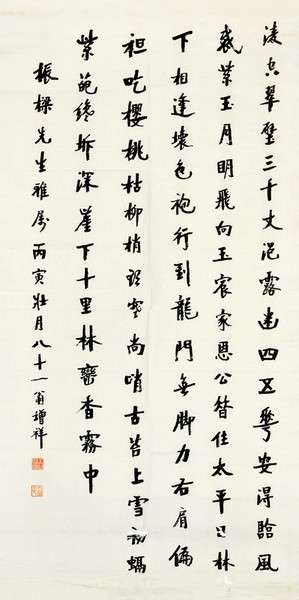 凌空翠壁三千丈浥露幽四五萼安得臨風
裁紫玉月明飛向玉宸家恩公替住太平只林
下相逢壞色袍行到龍門無脚力右肩偏
袒吃櫻桃枯柳梢頭雪尚哨古苔上雪初螭
紫苑纔坼深崖下十里林巒香霧中
振樑先生雅属丙寅壯月八十一翁增祥